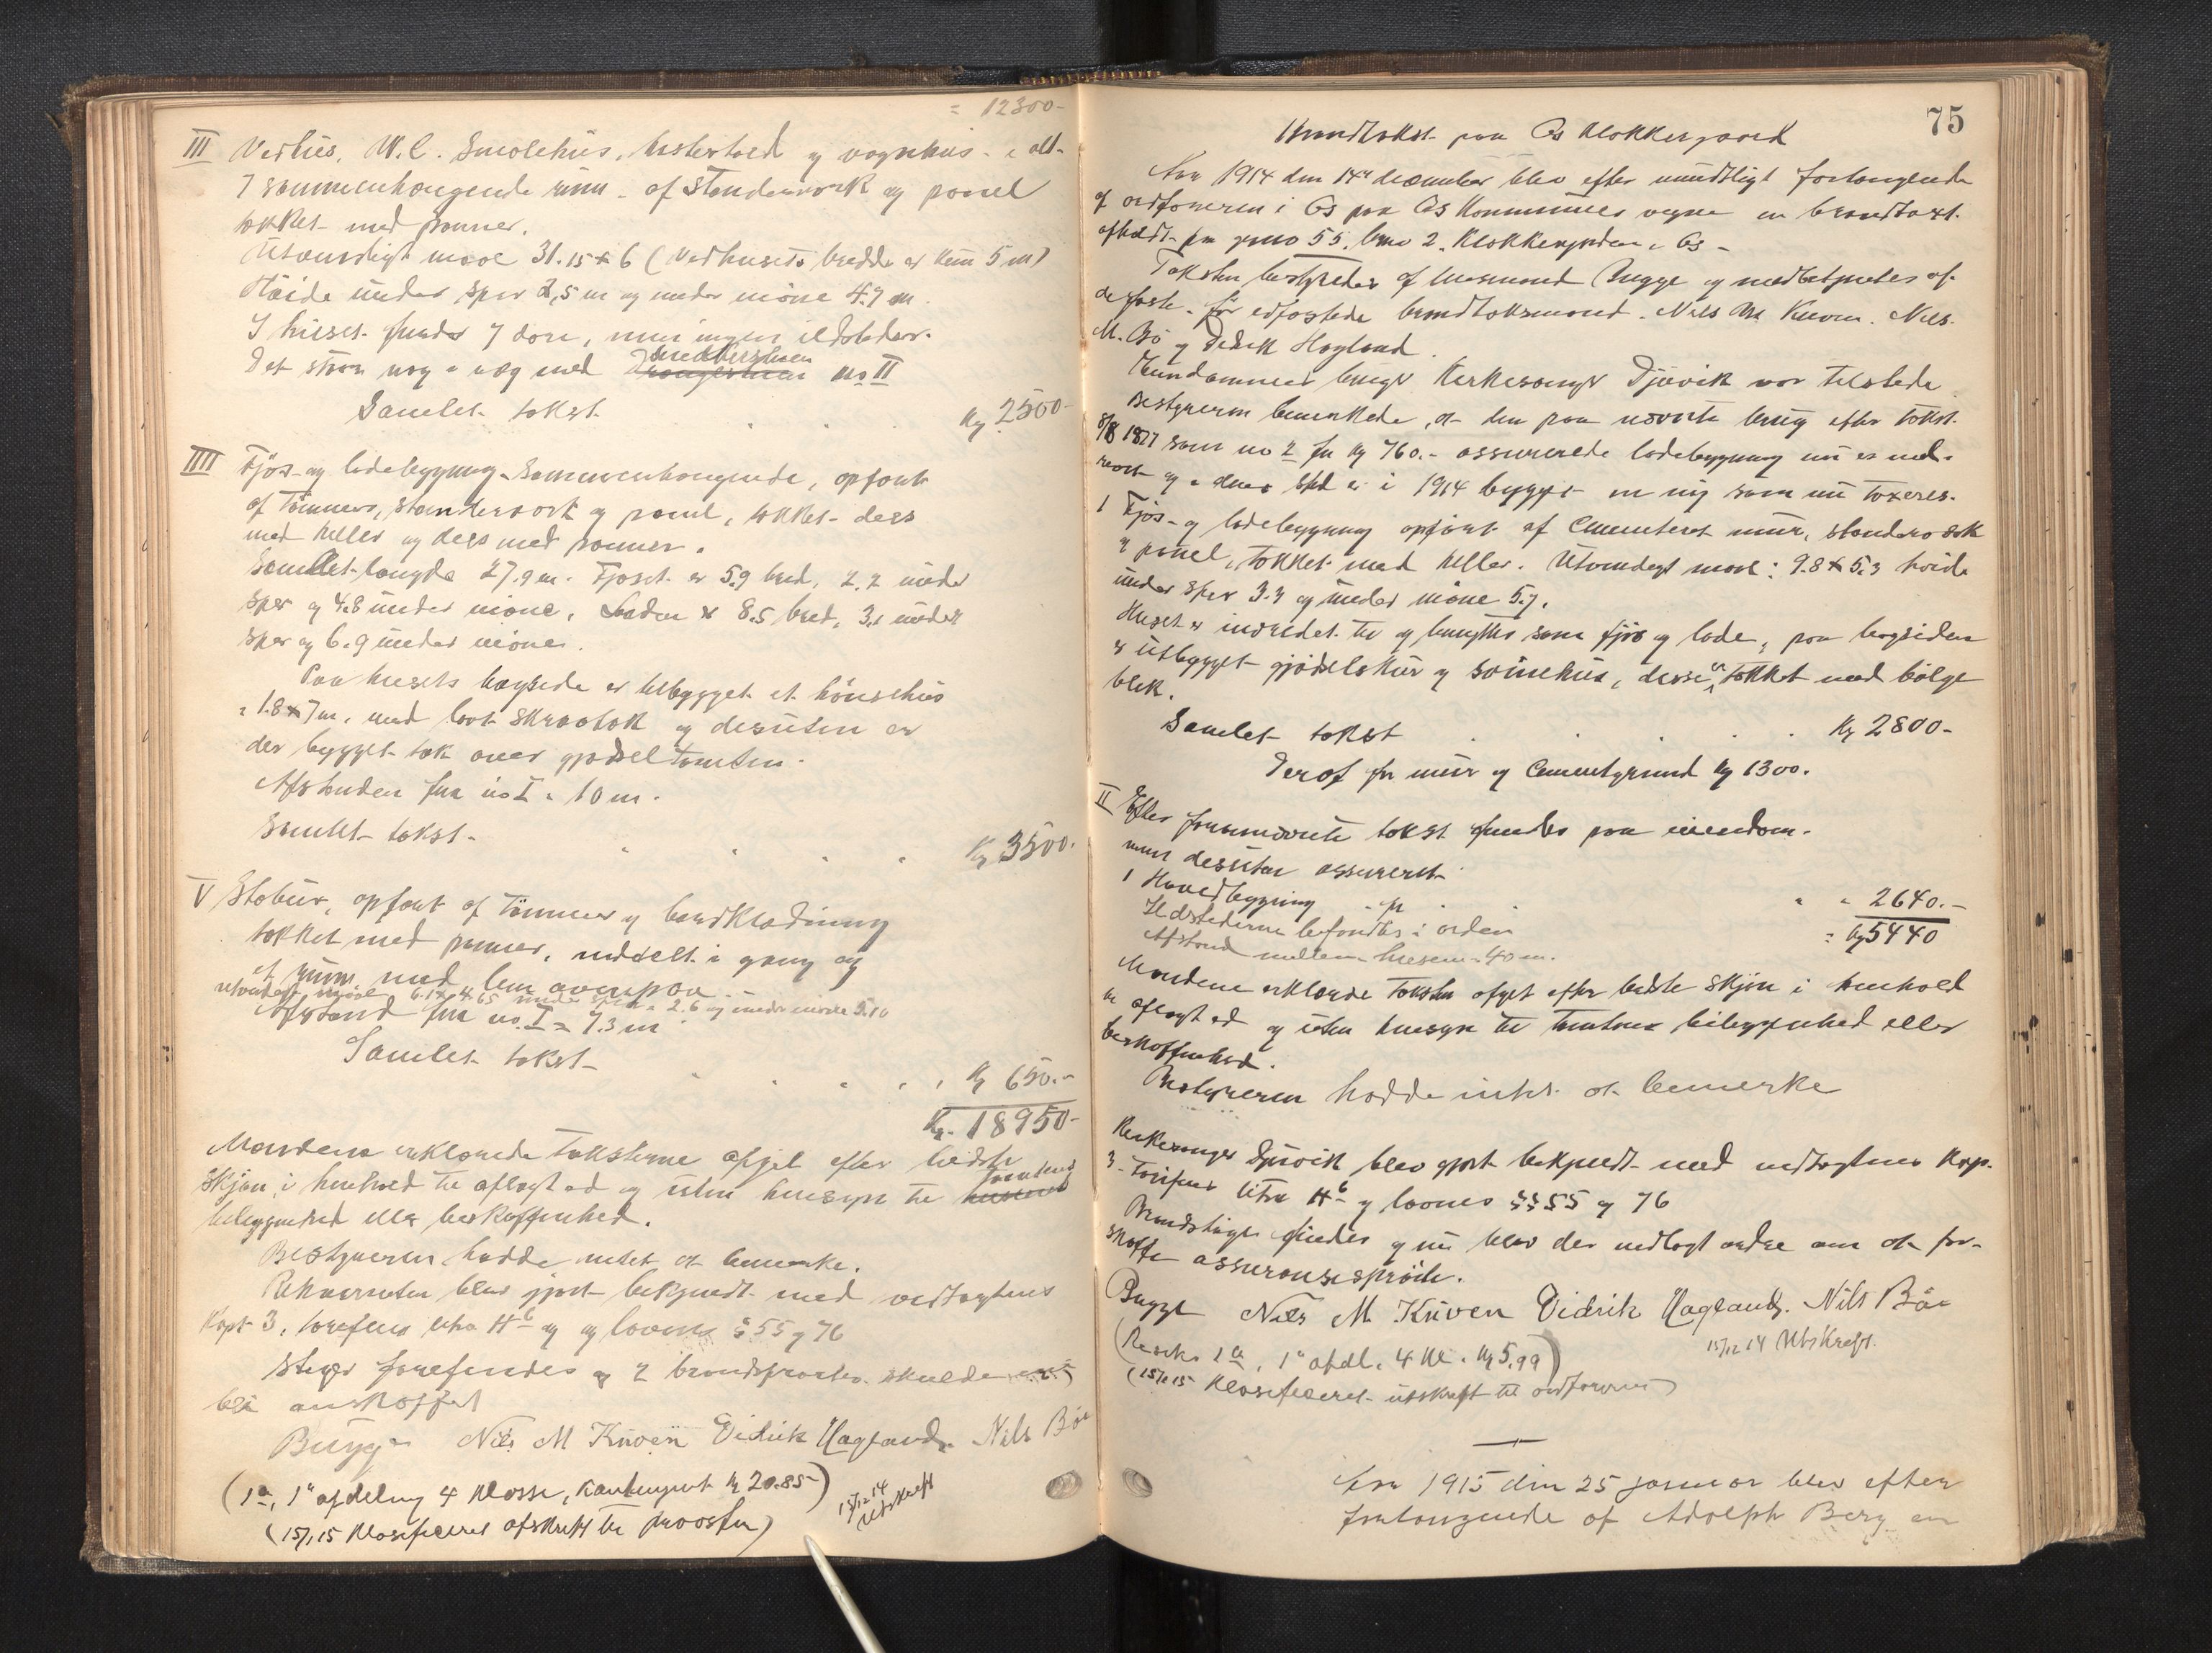 = 12300-
III Vedhus, W.C. Smolehus, hestestald og vognhus - i alt-
7 sammenhængende rum - af standerværk og panel
tækket med panner.
Utvendigt maal 31.15 x 6 (Vedhusets bredde er kun 5 m)
Høide under sper 2,5 m og under møne 4.7 m.
I huset findes 7 døre, men ingen ildsteder.
Det staar væg i væg med drengestuen no II
Samlet takst Kr 2500-
IIII Fjøs- og ladebygning sammenhængende, opført
af tømmer, standerværk og panel, tækket dels
med heller og dels med panner.
Samlet længde 27.9 m. Fjøset er 5.9 bred, 2.2 under
sper og 4.8 under møne. Laden er 8.5 bred, 3.1 under
sper og 6.9 under mønet.
Paa husets bagside er tilbygget et hønsehus
= 1.8 x 7 m. med lavt skraatak og desuten er
der bygget tak over gjødseltomten.
Afstanden fra no I = 10 m.
Samlet takst - Kr 3500.
V Stabur, opført af tømmer og bordklædning
tækket med panner, inddelt i gang og
et rum med lem ovenpaa.
utvendigt maal 6.1 x 4.65 under sper = 2.6 og under møne 5.10
Afstand fra no. I = 7.3 m
Samlet takst - Kr 650.-
Kr. 18950-
Mændene erklærede taksterne afgit efter bedste
skjøn i henhold til aflagt ed og uten hensyn til husenes tomtens
beliggenhed eller beskaffenhed.
Bestyreren hadde intet at bemerke.
Rekvirenten blev gjort bekjendt med vedtægtens
Kapt 3, tarifens litra H6 og lovens § 55 og 76
Stiger forefindes og 2 brandsprøiter skulde
bli anskaffet
Bugge Nils M Kuven Didrik Hagland. Nils Bø
(1a, 1ste afdeling 4 klasse, Kontingent kr 20.85)
15/12 14 Utskreft
(15/1 15 Klassificeret afskrift til provsten)
75
Brandtakst paa Os Klokkergaard
Aar 1914 den 14de december blev efter mundtligt forlangende
af ordføreren i Os paa Os Kommunes vegne en brandtaxt
afholdt paa gno 55, bno 2. Klokkergaarden, Os -
Taksten bestyredes af lensmand Bugge og medbetjentes af
de faste før edfæstede brandtaksmænd. Nils M. Kuven. Nils
M. Bø og Didrik Hagland.
Eiendommens bruger Kirkesanger Djuvik var tilstede
Bestyreren bemerkede, at den paa nævnte brug efter takst
8/8 1877 som no 2 for kr 760.- assurerede ladebygning nu er ned-
revet og i dens sted er i 1914 bygget en ny som nu taxeres.
1 Fjøs- og ladebygning opført af cementeret mur, standerværk
og panel, tækket med heller. Utvendigt maal: 9.8 x 5.3 høide
under sper 3.3 og under møne 5.7.
Huset er indredet til og benyttes som fjøs og lade, paa bagsiden
er utbygget gjødselskur og somehus, disse er tækket med bølge
blik.
Samlet takst Kr 2800-
Deraf for mur og cementgrund kr 1300.
II Efter forannævnte takst findes paa eiendom-
men desuten assureret
1 Hovedbygning for " " 2640.-
Ildstederne befandtes i orden = Kr 5440
Afstand mellem husene 40 m.
Mændene erklærede taksten afgit efter bedste skjøn i henhold
til aflagt ed og uten hensyn til tomtens beliggenhed eller
beskaffenhed.
Bestyreren hadde intet at bemerke
Kirkesanger Djuvik blev gjort bekjendt med vedtægtens Kap.
3 - tarifens litra H6 og lovens §§ 55 og 76
Brandstiger findes og nu blev der nedlagt ordre om at for-
skaffe assuransesprøite.
Bugge Nils M Kuven Didrik Hagland. Nils Bø
15/12 14 Utskreft.
(Risiko 1a, 1ste afdl. 4 kl. kr 5,99)
(15/1 15 Klassificeret utskrift til ordføreren)
Aar 1915 den 25 januar blev efter
forlangende af Adolph Berg en